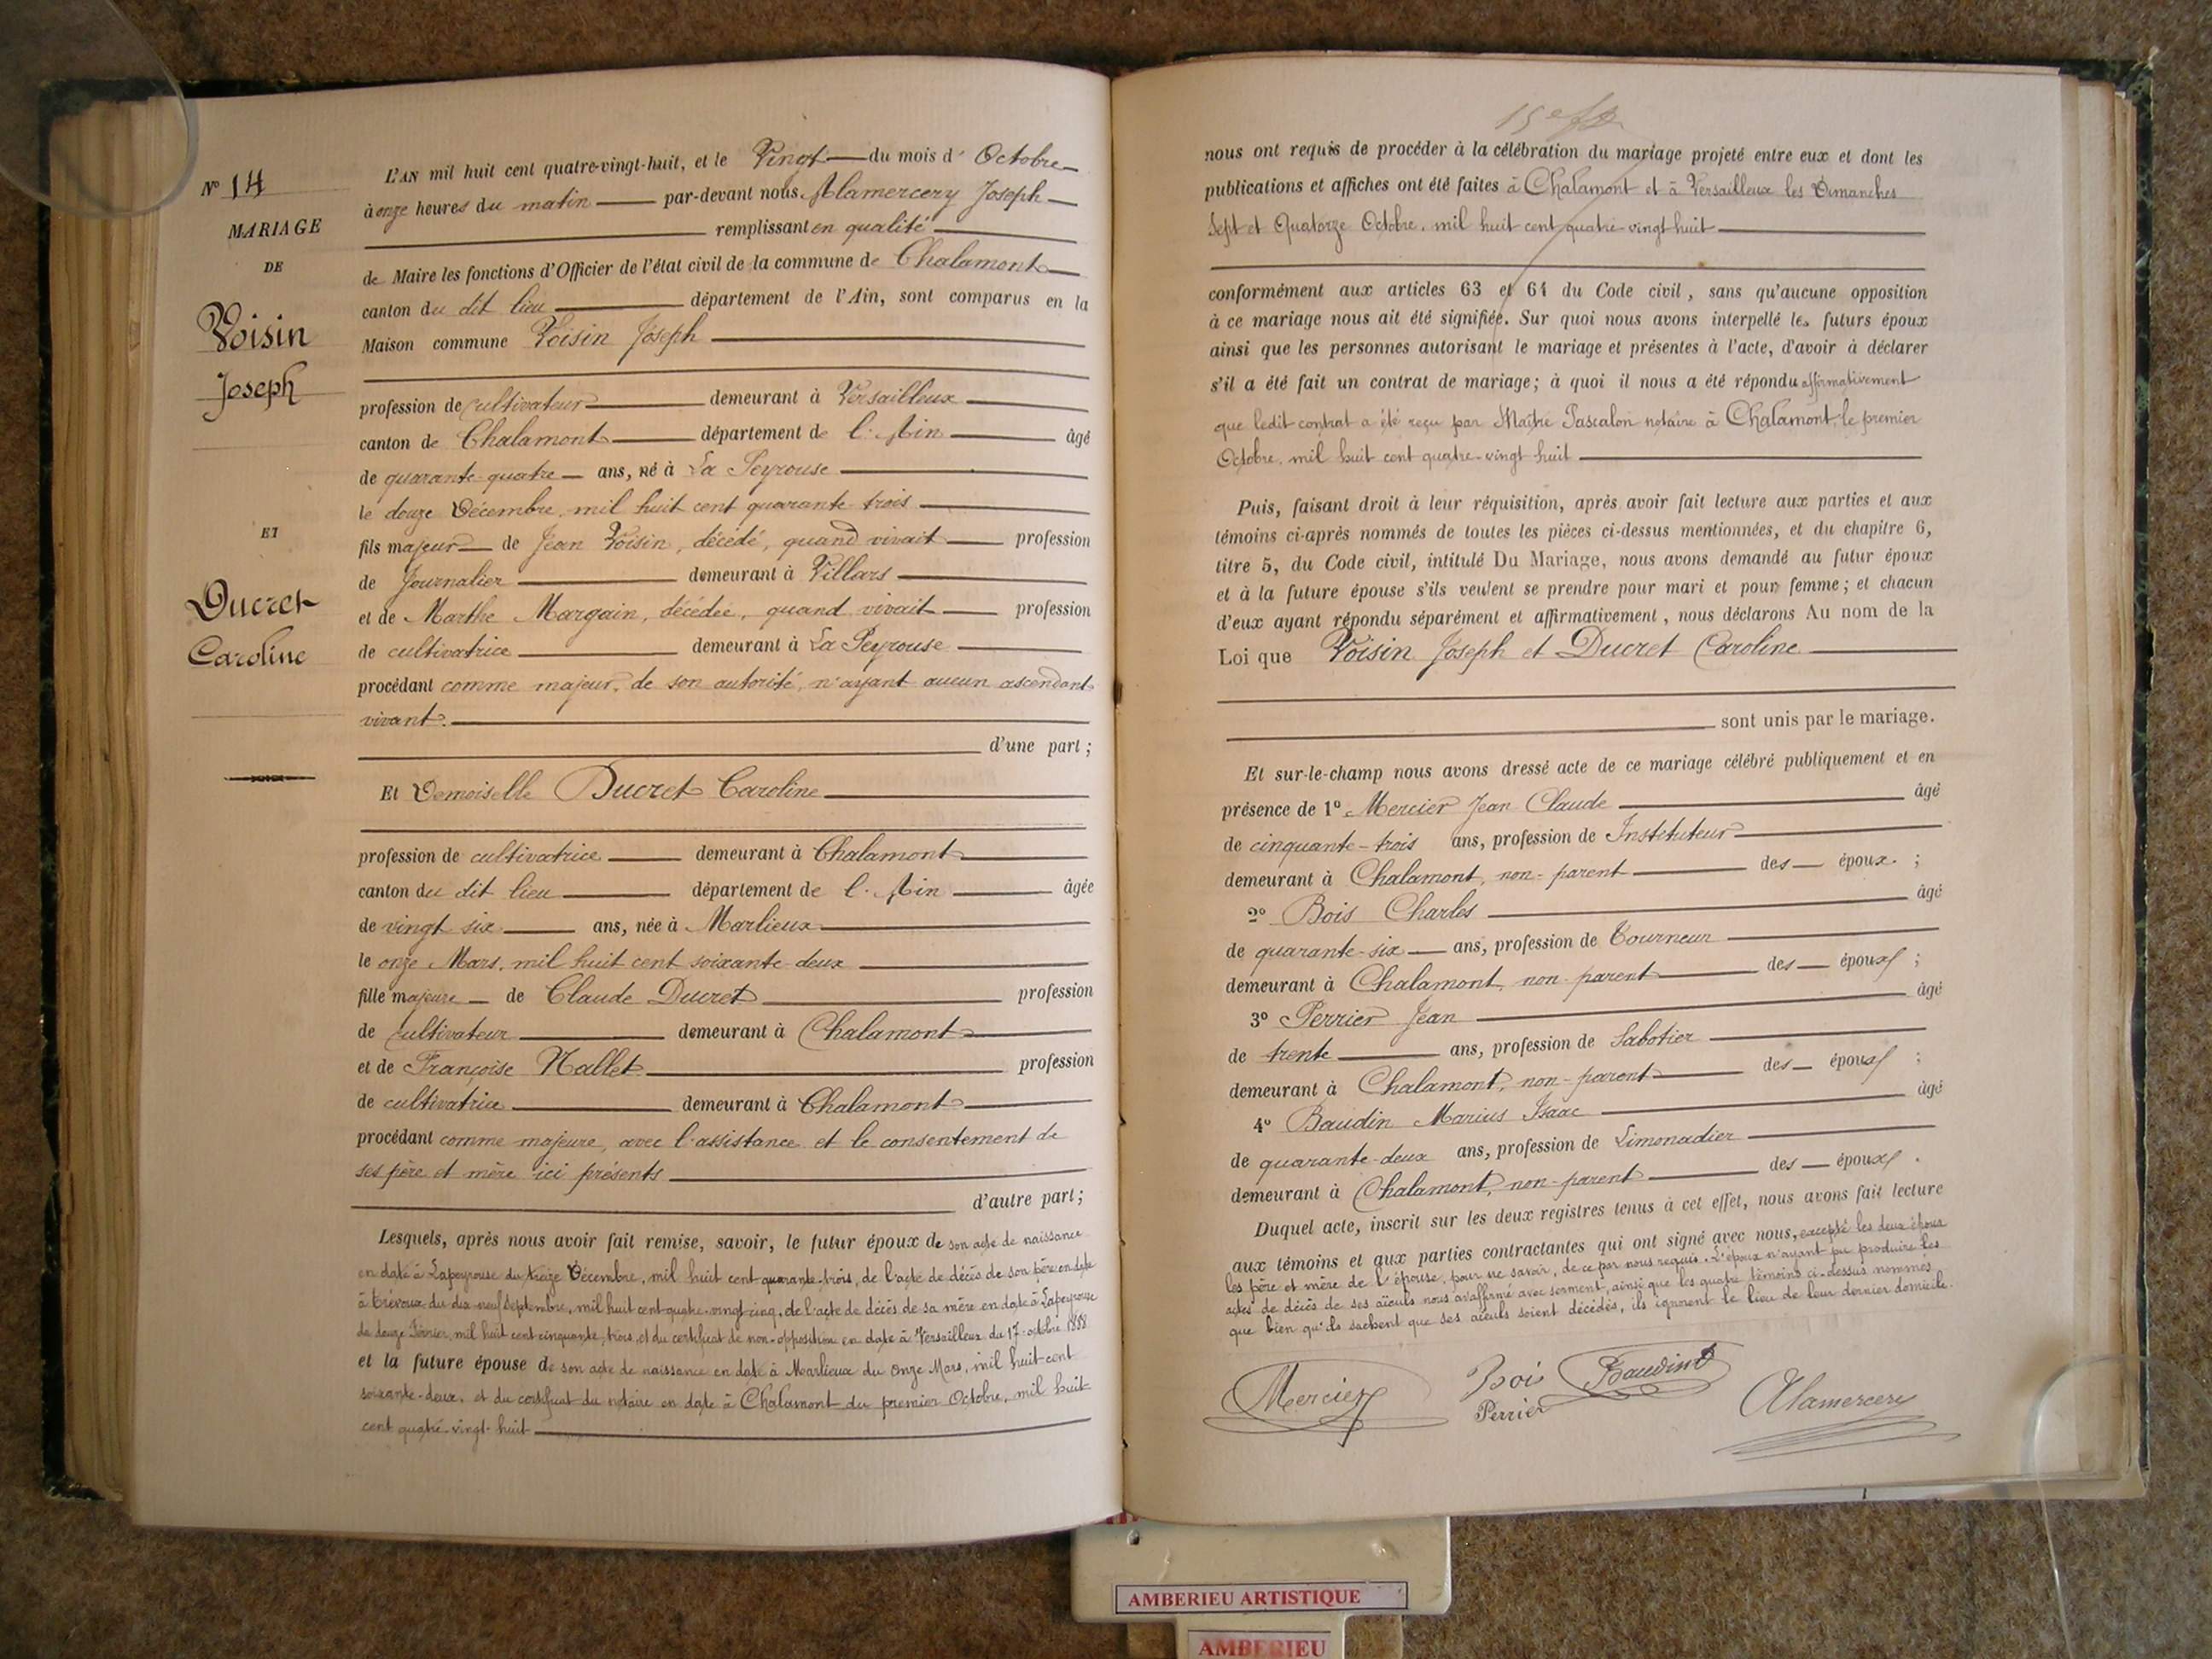 N° 14
MARIAGE
DE
Voisin
Joseph
ET
Ducret
Caroline
L'AN mil huit cent quatre-vingt-huit, et le Vingt du mois d' Octobre
à onze heures du matin par-devant nous Alamercery Joseph
remplissant en qualité
de Maire les fonctions d'Officier de l'état civil de la commune de Chalamont
canton du dit lieu département de l'Ain, sont comparus en la
Maison commune Voisin Joseph
profession de cultivateur demeurant à Versailleux
canton de Chalamont département de l'Ain âgé
de quarante-quatre ans, né à La Peyrouse
le douze Décembre, mil huit cent quarante trois
fils majeur de Jean Voisin, décédé, quand vivait profession
de Journalier demeurant à Villars
et de Marthe Margain, décédée, quand vivait profession
de cultivatrice demeurant à La Peyrouse
procédant comme majeur, de son autorité, n'ayant aucun ascendant
vivant.
d'une part ;
Et Demoiselle Ducret Caroline
profession de cultivatrice demeurant à Chalamont
canton du dit lieu département de l'Ain âgée
de vingt six ans, née à Marlieux
le onze Mars, mil huit cent soixante deux
fille majeure de Claude Ducret profession
de cultivateur demeurant à Chalamont
et de Françoise Nallet profession
de cultivatrice demeurant à Chalamont
procédant comme majeure, avec l'assistance et le consentement de
ses père et mère ici présents
d'autre part ;
Lesquels, après nous avoir fait remise, savoir, le futur époux de son acte de naissance
en date à Lapeyrouse du treize Décembre, mil huit cent quarante-trois, de l'acte de décès de son père en date
à Trévoux du dix-neuf Septembre, mil huit cent quatre-vingt-cinq, de l'acte de décès de sa mère en date à Lapeyrouse
du douze Février, mil huit cent cinquante trois, et du certificat de non-opposition en date à Versailleux du 17 octobre 1888
et la future épouse de son acte de naissance en date à Marlieux du onze Mars, mil huit-cent
soixante-deux, et du certificat du notaire en date à Chalamont du premier Octobre, mil huit
cent quatre-vingt-huit
nous ont requis de procéder à la célébration du mariage projeté entre eux et dont les
publications et affiches ont été faites à Chalamont et à Versailleux les Dimanches
Sept et Quatorze Octobre, mil huit cent quatre-vingt huit
conformément aux articles 63 et 64 du Code civil, sans qu'aucune opposition
à ce mariage nous ait été signifiée. Sur quoi nous avons interpellé les futurs époux
ainsi que les personnes autorisant le mariage et présentes à l'acte, d'avoir à déclarer
s'il a été fait un contrat de mariage ; à quoi il nous a été répondu affirmativement
que ledit contrat a été reçu par Maître Pascalon notaire à Chalamont, le premier
Octobre, mil huit cent quatre-vingt huit
Puis, faisant droit à leur réquisition, après avoir fait lecture aux parties et aux
témoins ci-après nommés de toutes les pièces ci-dessus mentionnées, et du chapitre 6,
titre 5, du Code civil, intitulé Du Mariage, nous avons demandé au futur époux
et à la future épouse s'ils veulent se prendre pour mari et pour femme ; et chacun
d'eux ayant répondu séparément et affirmativement, nous déclarons Au nom de la
Loi que Voisin Joseph et Ducret Caroline
sont unis par le mariage.
Et sur-le-champ nous avons dressé acte de ce mariage célébré publiquement et en
présence de 1° Mercier Jean Claude âgé
de cinquante-trois ans, profession de Instituteur
demeurant à Chalamont, non-parent des époux ;
2° Bois Charles âgé
de quarante-six ans, profession de Tourneur
demeurant à Chalamont, non-parent des époux ;
3° Perrier Jean âgé
de trente ans, profession de Sabotier
demeurant à Chalamont, non-parent des époux ;
4° Baudin Marius Isaac âgé
de quarante-deux ans, profession de Limonadier
demeurant à Chalamont, non-parent des époux.
Duquel acte, inscrit sur les deux registres tenus à cet effet, nous avons fait lecture
aux témoins et aux parties contractantes qui ont signé avec nous, excepté les deux époux
les père et mère de l'épouse, pour ne savoir, de ce par nous requis. L'époux n'ayant pu produire les
actes de décès de ses aïeuls nous a affirmé avec serment, ainsi que les quatre témoins ci-dessus nommés
que bien qu'ils sachent que ses aïeuls soient décédés, ils ignorent le lieu de leur dernier domicile.
Mercier
Boi
Baudin
Perrier
Alamercery
AMBERIEU ARTISTIQUE
AMBERIEU